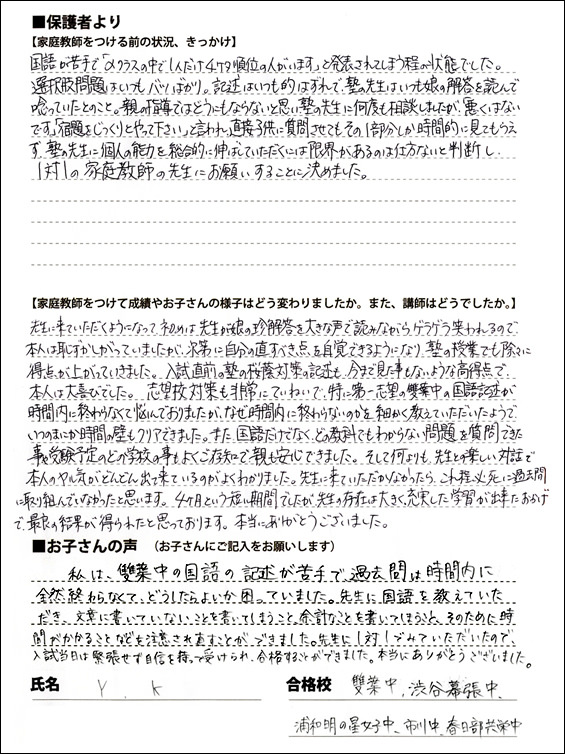 ■保護者より
【家庭教師をつける前の状況、きっかけ】
国語が苦手で「αクラスの中で1人だけ4ケタ順位の人がいます」と発表されてしまう程の状態でした。
選択肢問題はいつもバツばかり。記述はいつも的はずれで、塾の先生はいつも娘の解答を読んで
唸っていたとのこと。親の指導ではどうにもならないと思い塾の先生に何度も相談しましたが、「悪くはない
です」「宿題をじっくりとやって下さい」と言われ、直接子供に質問させてもその1部分しか時間的に見てもらえ
ず、塾の先生に個人の能力を総合的に伸ばしていただくには限界があるのは仕方ないと判断し、
1対1の家庭教師の先生にお願いすることに決めました。
【家庭教師をつけて成績やお子さんの様子はどう変わりましたか。また、講師はどうでしたか。】
先生に来ていただくようになって初めは先生が娘の珍解答を大きな声で読みながらゲラゲラ笑われるので、
本人は恥ずかしがっていましたが、次第に自分の直すべき点を自覚できるようになり、塾の授業でも徐々に
得点が上がっていきました。入試直前の塾の桜蔭対策の記述も今まで見た事もないような高得点で
本人は大喜びでした。志望校対策も非常にていねいで、特に第一志望の雙葉中の国語記述が
時間内に終わらなくて悩んでおりましたが、なぜ時間内に終わらないのかを細かく教えていただいたようで
いつのまにか時間の壁もクリアできました。また、国語だけでなく、どの教科でもわからない問題を質問できた
事や受験予定のどの学校の事もよくご存知で親も安心できました。そして何よりも、先生との楽しい対話で
本人のやる気がどんどん出て来ているのがよくわかりました。先生に来ていただかなかったら、これ程必死に過去問
に取り組んでいなかったと思います。4ヶ月という短い期間でしたが先生の存在は大きく、充実した学習が出来たおかげ
で、最良の結果が得られたと思っております。本当にありがとうございました。
■お子さんの声 （お子さんにご記入をお願いします）
私は、雙葉中の国語の記述が苦手で、過去問は時間内に
全然終わらなくて、どうしたらよいか困っていました。先生に国語を教えていた
だき、文章に書いていないことを書いてしまうこと、余計なことを書いてしまうこと、そのために時
間がかかることなどを注意され直すことができました。先生に1対1でみていただいたので、
入試当日は緊張せず自信を持って受けられ、合格することができました。本当にありがとうございました。
氏名 Y．K 合格校 雙葉中、渋谷幕張中、
浦和明の星女子中、市川中、春日部共栄中